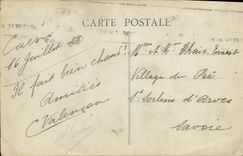 CARTE POSTALE
Caen
16 Juillet
Il fait bien chaud!
Amitiés
Valençon
Mme et Mr Ernest
Village du Pré
St Sorlin d'Arves
Savoie